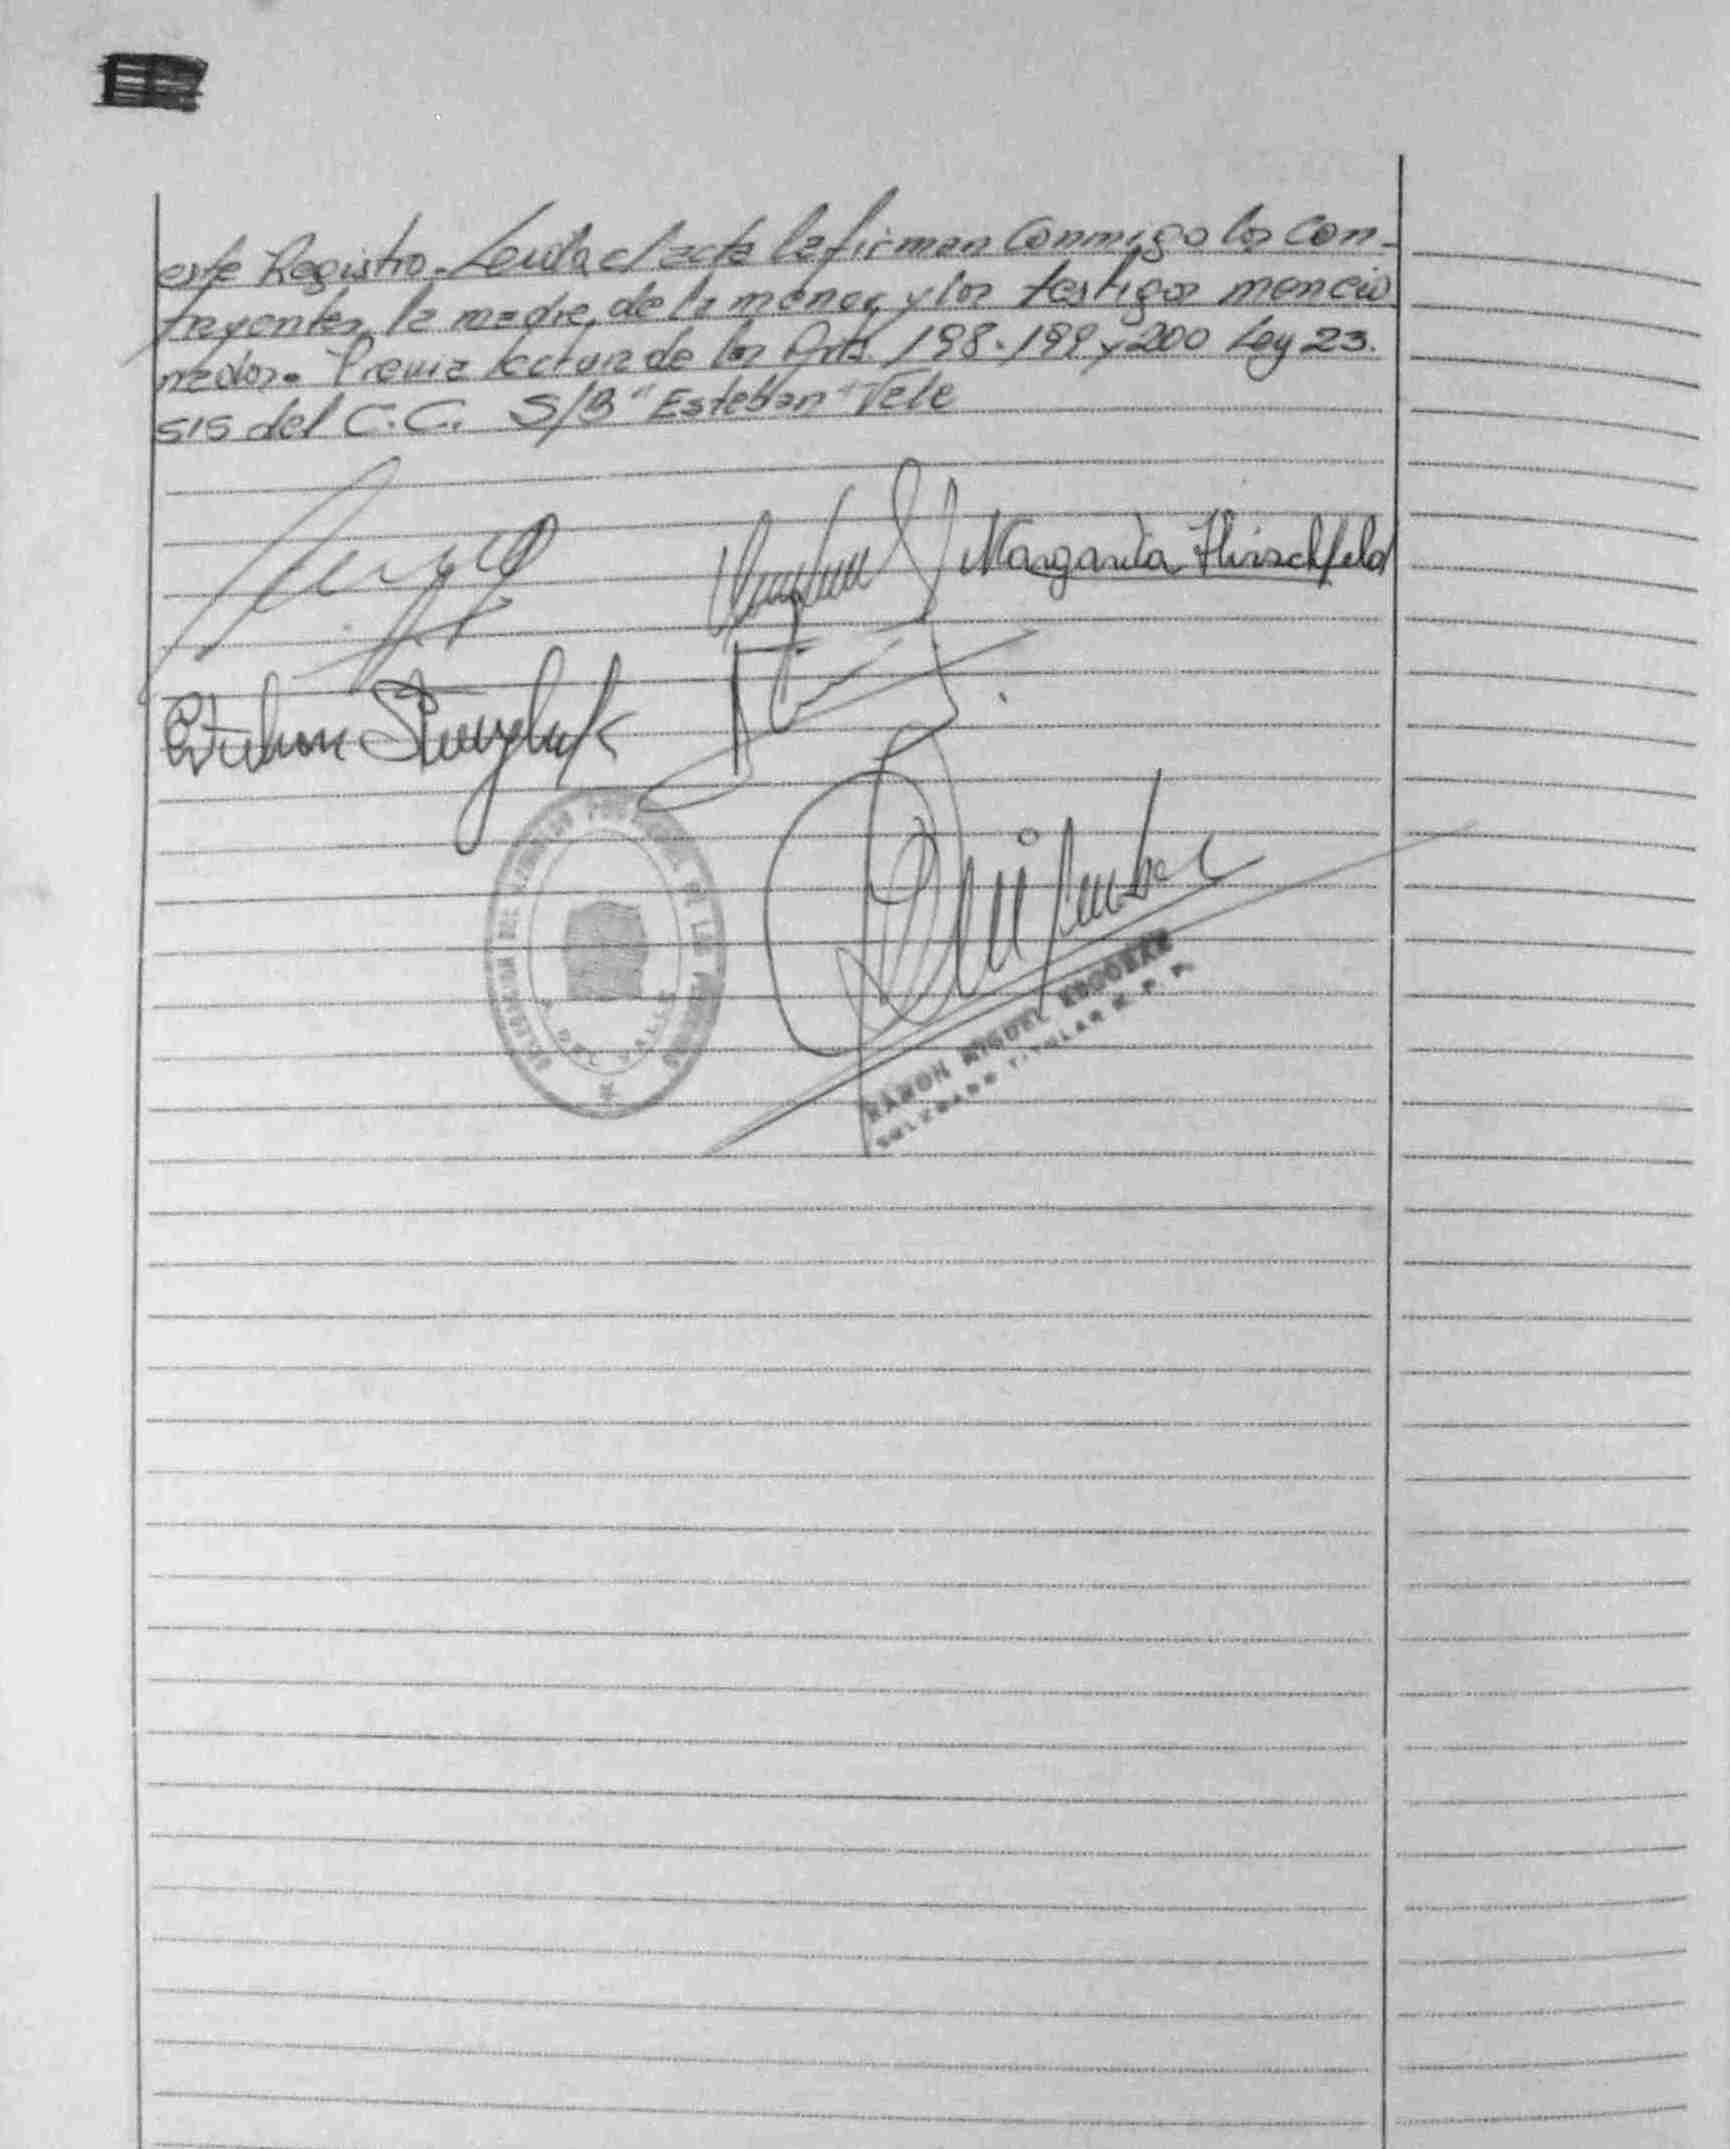 este Registro. Leida el acta la firman conmigo los con-
trayentes, la madre de la menor, y los testigos mencio
nados. Previa lectura de los Arts. 198. 199 y 200 Ley 23.
515 del C.C. S/B "Esteban" Vale
Margarita Hirschfeld
Esteban
REGISTRO PROVINCIAL DE LAS PERSONAS
DEL VALLE
RAMON MIGUEL ESCOBAR
TITULAR R. P. P.